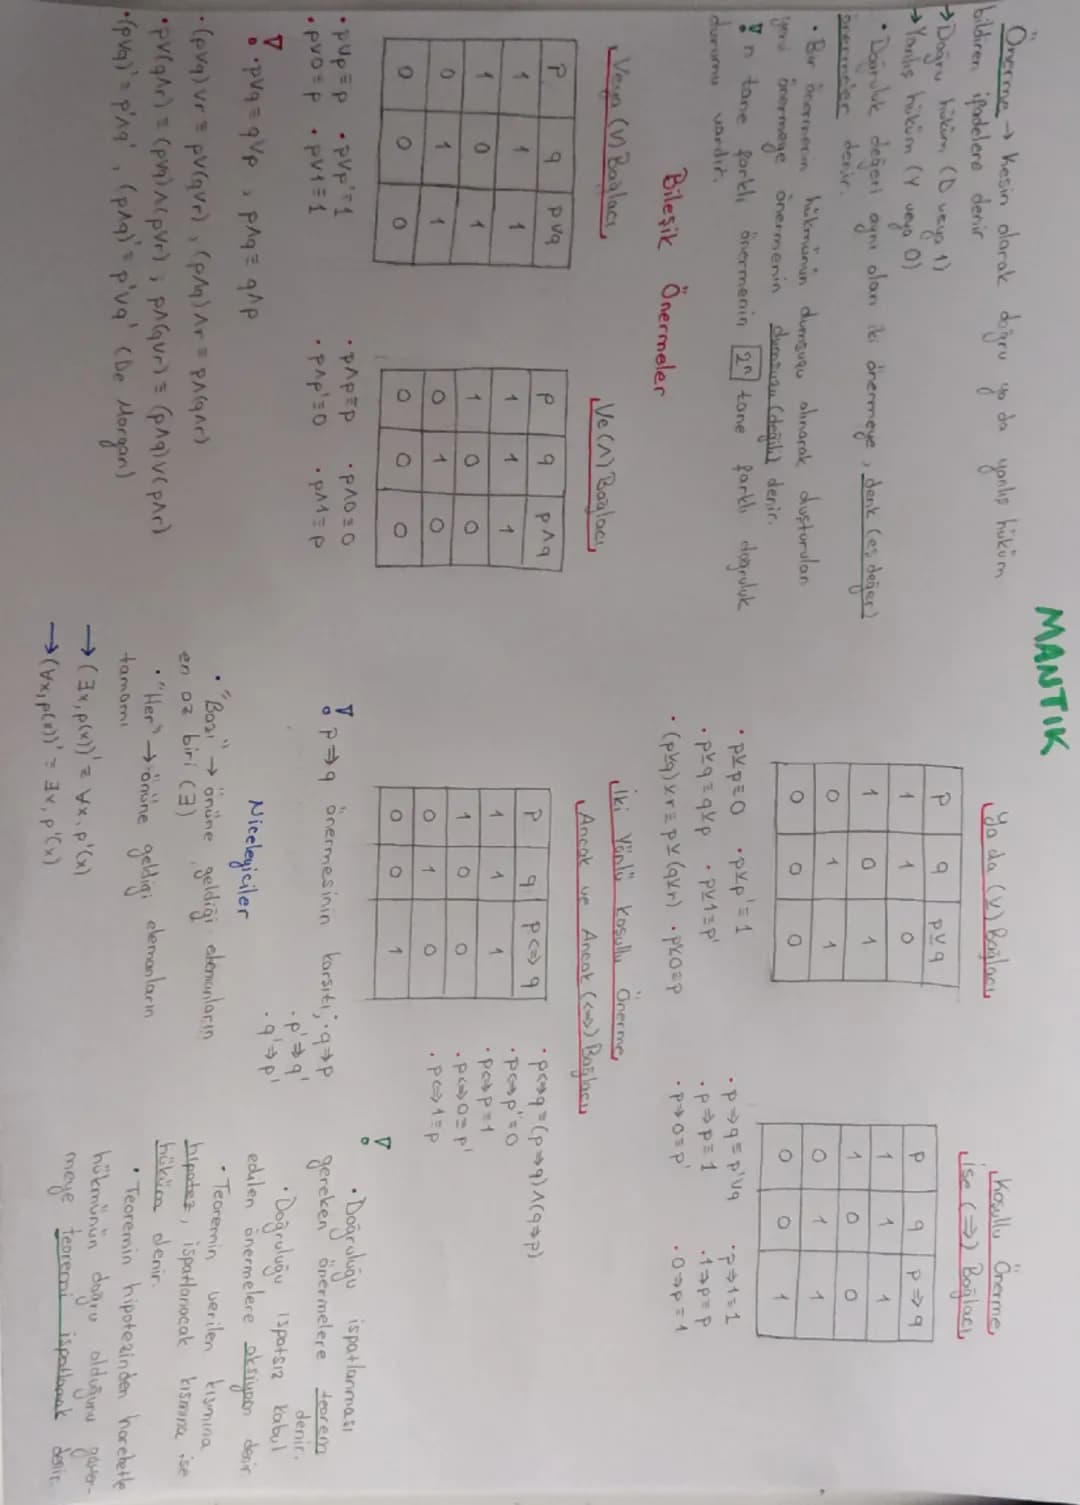 MANTIK
Önerme → Kesin olarak doğru ya da yanlış hüküm
bildiren ifadelere denir
→ Doğru hüküm (D veya 1)
→ Yanlış hüküm (Y veya 0)
• Doğruluk değeri aynı olan iki önermeye, denk (eş değer)
önermeler denir.
• Bir önermenin hükmünün olumsuzu alınarak oluşturulan
yeni önermeye önermenin olumsuzu (değili) denir.
n tane farklı önermenin 2ⁿ tane farklı doğruluk
durumu vardır.
Bileşik Önermeler
Veya (V) Bağlacı
p q pvq
1 1 1
1 0 1
0 1 1
0 0 0
• pvp≡p • pvp'≡1
• pv0≡p • pv1≡1
Ve (∧) Bağlacı
p q p∧q
1 1 1
1 0 0
0 1 0
0 0 0
• p∧p≡p • p∧0≡0
• p∧p'≡0 • p∧1≡p
• pvq≡qvp, p∧q≡q∧p
• (pvq)vr≡pv(qvr), (p∧q)∧r≡p∧(q∧r)
• pv(q∧r)≡(pvq)∧(pvr), p∧(qvr)≡(p∧q)v(p∧r)
• (pvq)'≡p'∧q', (p∧q)'≡p'vq' (De Morgan)
Ya da (⊻) Bağlacı
p q p⊻q
1 1 0
1 0 1
0 1 1
0 0 0
• p⊻p≡0 • p⊻p'≡1
• p⊻q≡q⊻p • p⊻1≡p'
• (p⊻q)⊻r≡p⊻(q⊻r) • p⊻0≡p
Koşullu Önerme
İse (⇒) Bağlacı
p q p⇒q
1 1 1
1 0 0
0 1 1
0 0 1
• p⇒q≡p'vq • p⇒1≡1
• p⇒p≡1 • 1⇒p≡p
• p⇒0≡p' • 0⇒p≡1
İki Yönlü Koşullu Önerme
Ancak ve Ancak (⇔) Bağlacı
p q p⇔q
1 1 1
1 0 0
0 1 0
0 0 1
• p⇔q≡(p⇒q)∧(q⇒p)
• p⇔p'≡0
• p⇔p≡1
• p⇔0≡p'
• p⇔1≡p
p⇒q önermesinin karşıtı; • q⇒p
• p'⇒q'
• q'⇒p'
Niceleyiciler
• "Bazı" → önüne geldiği elemanların
en az biri (∃)
• "Her" → önüne geldiği elemanların
tamamı
→ (∃x, p(x))'≡∀x, p'(x)
→ (∀x, p(x))'≡∃x, p'(x)
• Doğruluğu ispatlanması
gereken önermelere teorem
denir.
• Doğruluğu ispatsız kabul
edilen önermelere aksiyon denir
• Teoremin verilen kısmına
hipotez, ispatlanacak kısmına ise
hüküm denir.
• Teoremin hipotezinden hareketle
hükmünün doğru olduğunu göster-
meye teoremi ispatlamak denir.